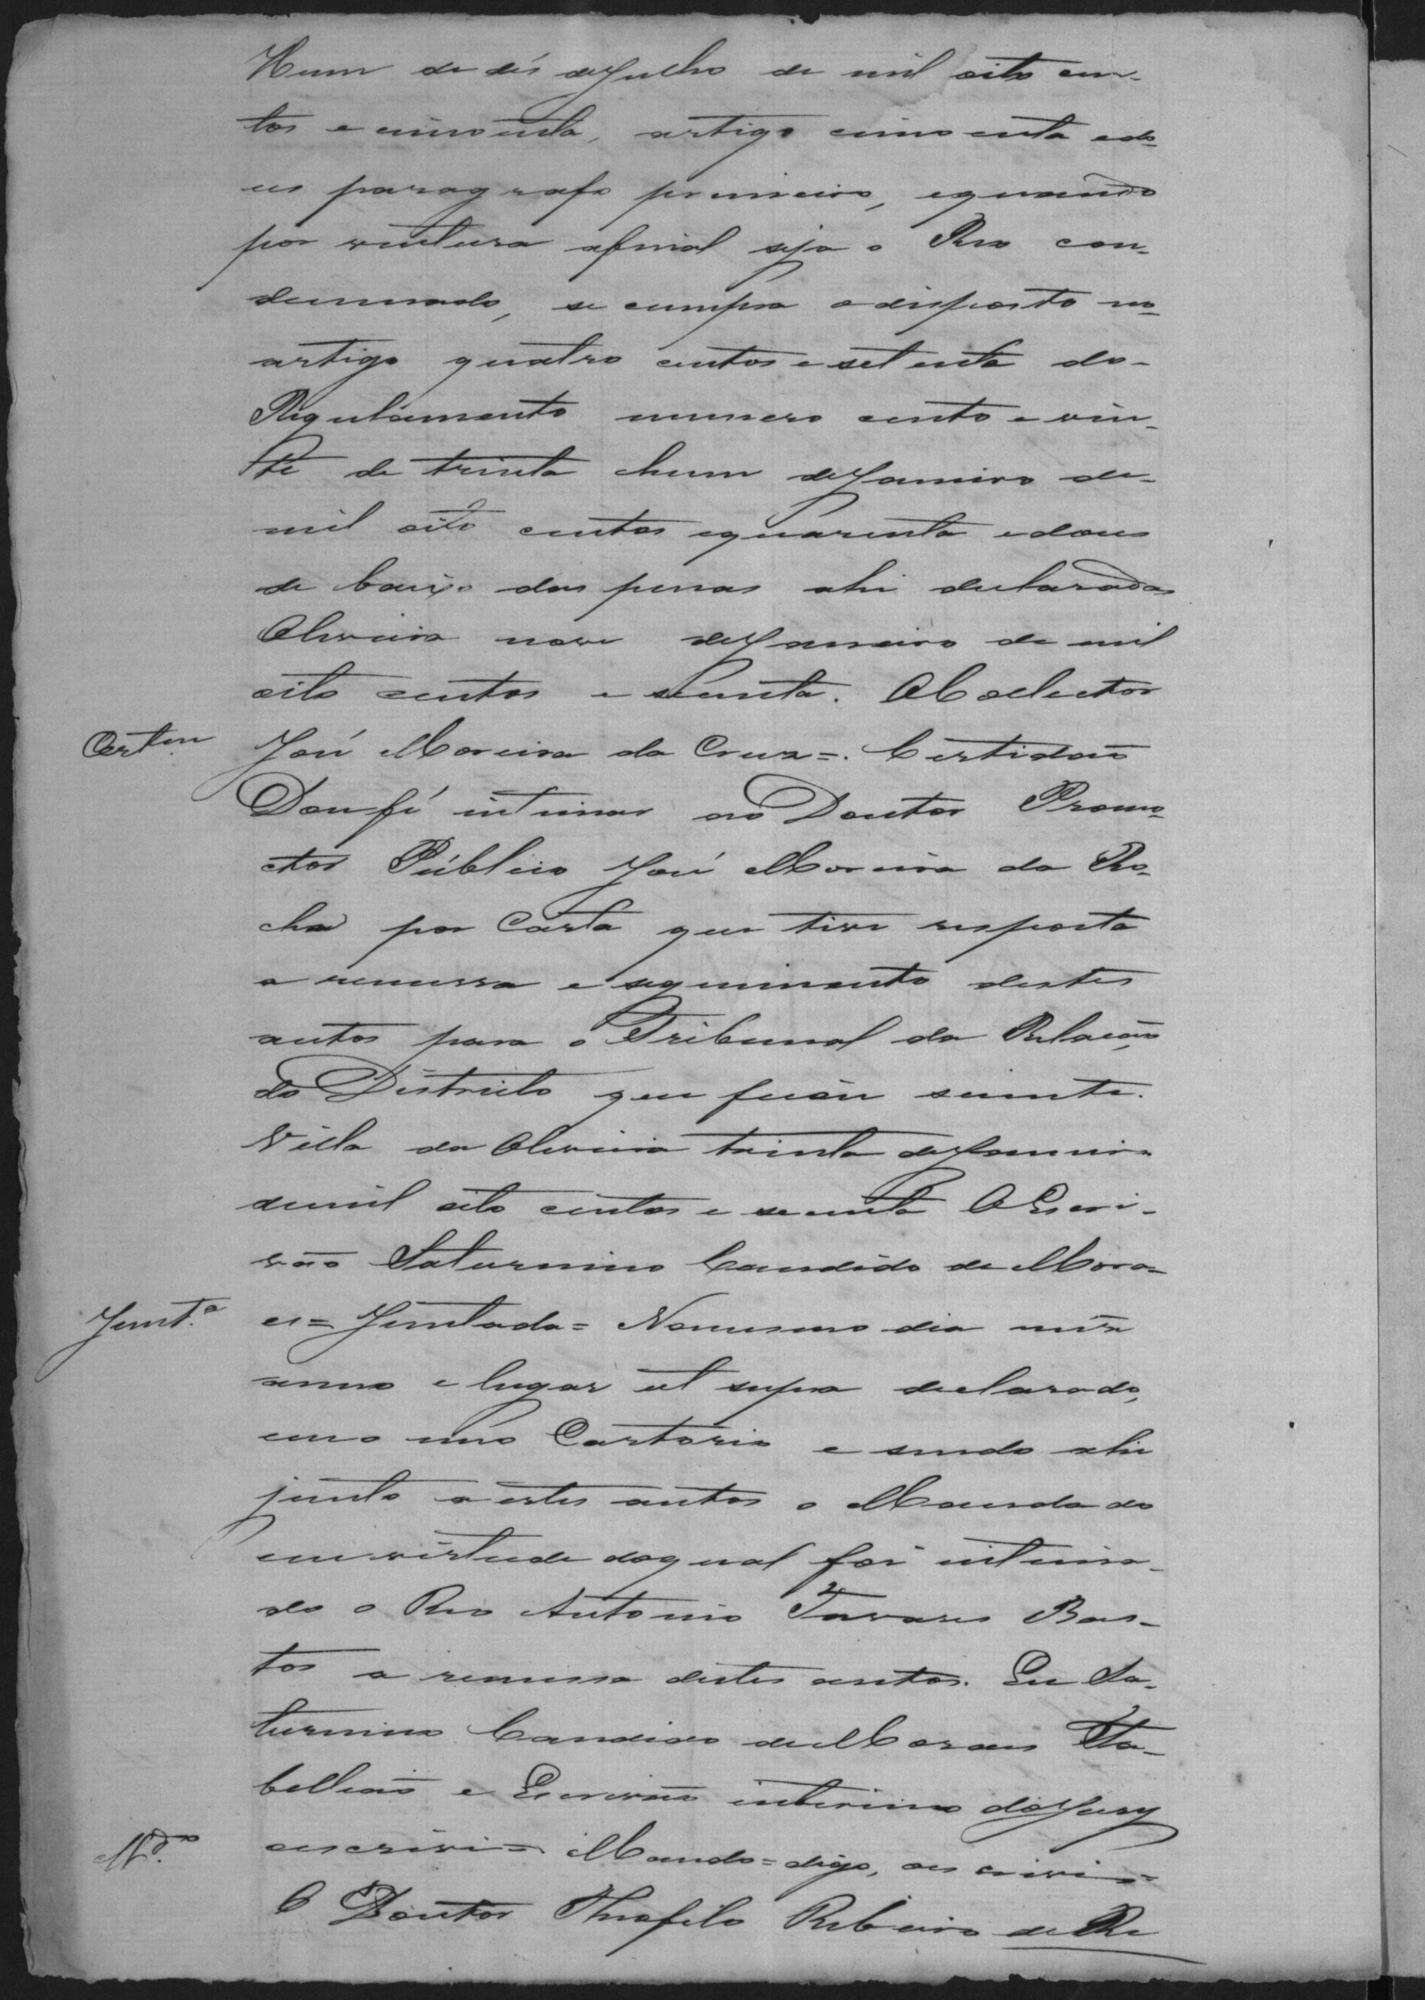 Hum de dés de Julho de mil oito cen-
tos e cincoenta, artigo cincoenta e do-
us paragrafo primeiro, equando
por ventura afinal seja o Reo con-
demnado, se cumpra o disposto no
artigo quatro centos e setenta do
Regulamento numero cento e vin-
te de trinta ehum de Janeiro de
mil oito centos equarenta e dous
de baixo das penas ahi declaradas
Oliveira nove de Janeiro de mil
oito centos e secenta. O Collector
Certam José Moreira da Cruz =. Certidão
Dou fé intimar ao Doutor Promo-
ctor Público José Moreira da Ro-
cha por Carta que tive resposta
a remessa e seguimento destes
autos para o Tribunal da Relação
do Districto que ficou sciente.
Villa da Oliveira trinta de Janeiro
demil oito centos e secenta O Escri-
vão Saturnino Candido de Mora-
Junt.ª es = Juntada = Nomesmo dia mês
anno e lugar ut supra declarado,
em o meo Cartorio e sendo ahi
junto a estes autos o Mandado
em virtude doqual foi intima-
do o Reo Antonio Tavares Bas-
tos a remessa destes autos. Eu Sa-
turnino Candido de Moraes Ta-
bellião e Escrivão interino do Jury
M.do oescrivi = Mando = digo, oescrivi =
O Doutor Theofilo Ribeiro de Re